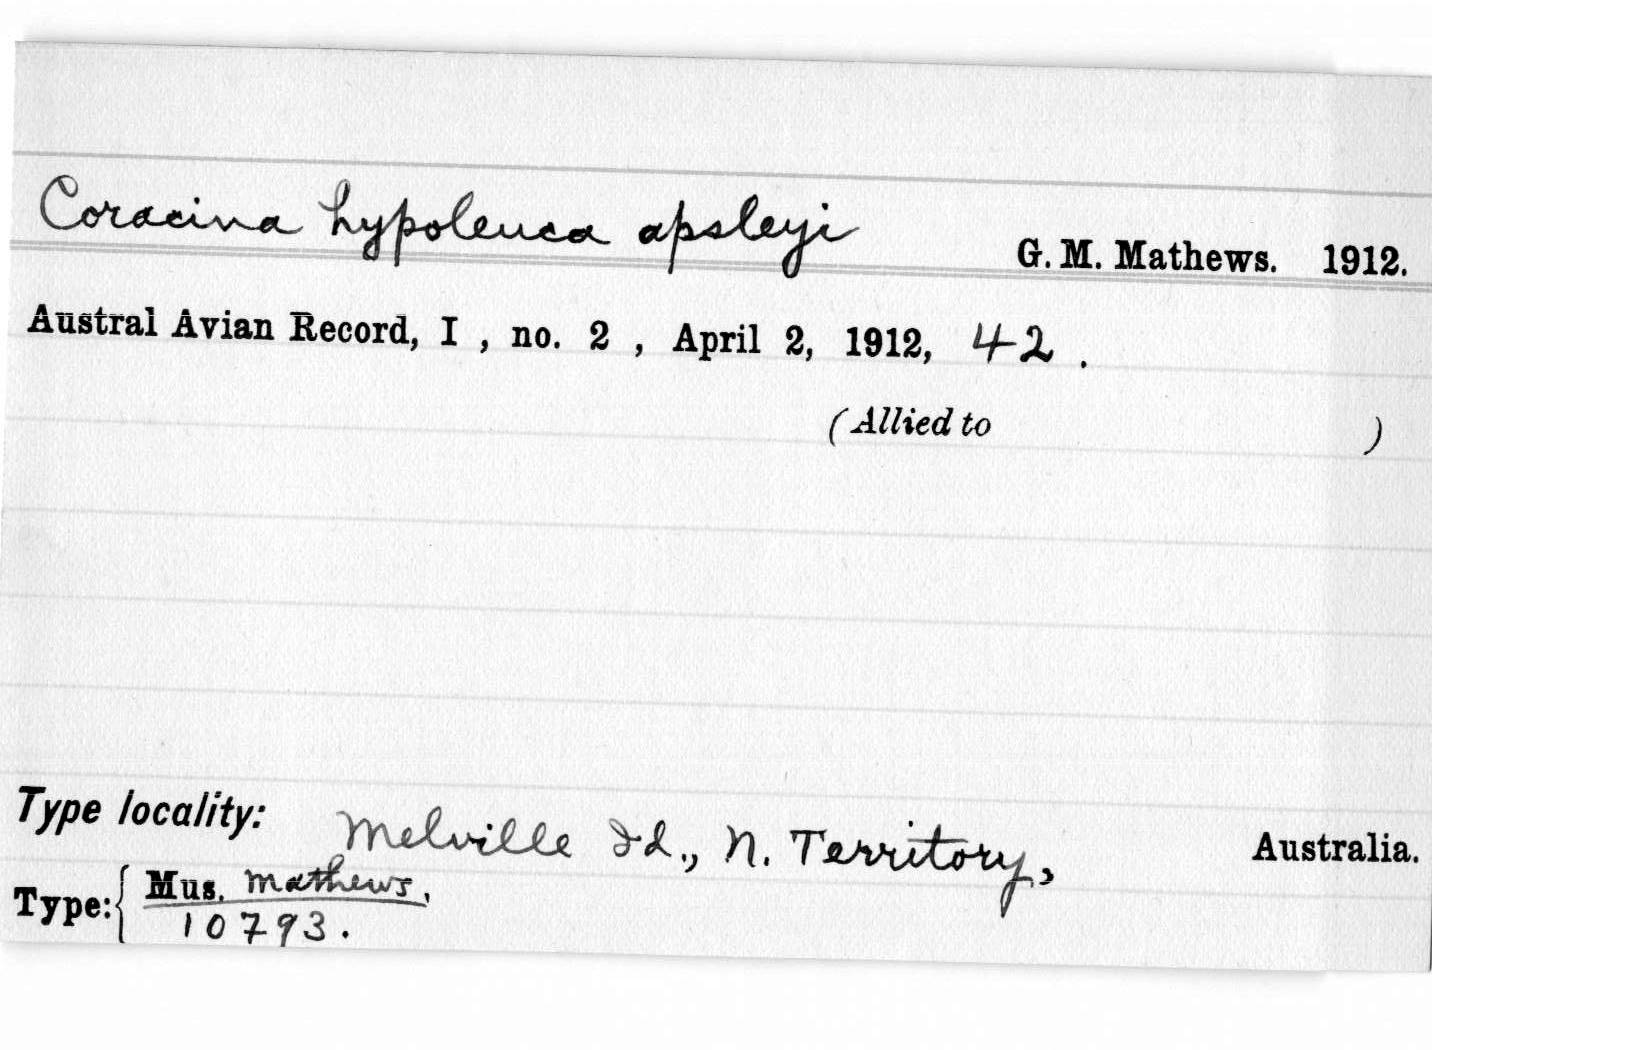 Coracina hypoleuca apsleyi G. M. Mathews. 1912.
Austral Avian Record, I , no. 2 , April 2, 1912, 42 .
( Allied to )
Type locality: Melville Id., N. Territory, Australia.
Type: { Mus. Mathews.
10793.